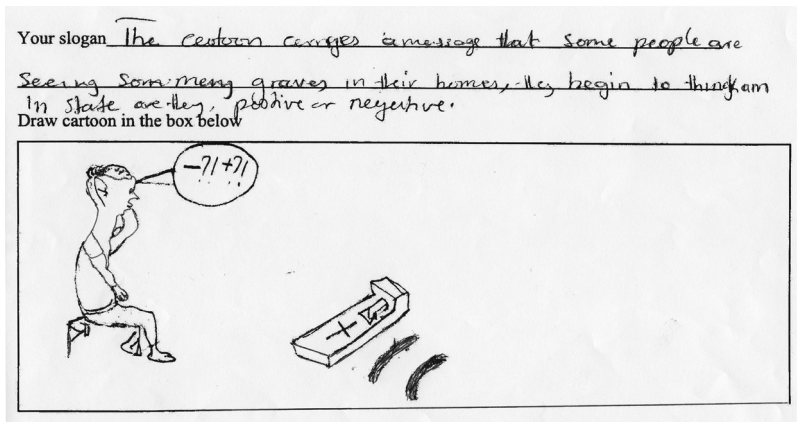 Your slogan The cartoon carryes a message that some people are
Seeing som many graves in their homes, they begin to think am
In state are they, positive or negertive.
Draw cartoon in the box below
-?! +?!